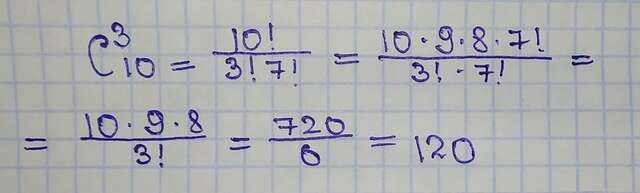 C₁₀³ = 10!/(3! 7!) = (10 · 9 · 8 · 7!)/(3! · 7!) =
= (10 · 9 · 8)/3! = 720/6 = 120